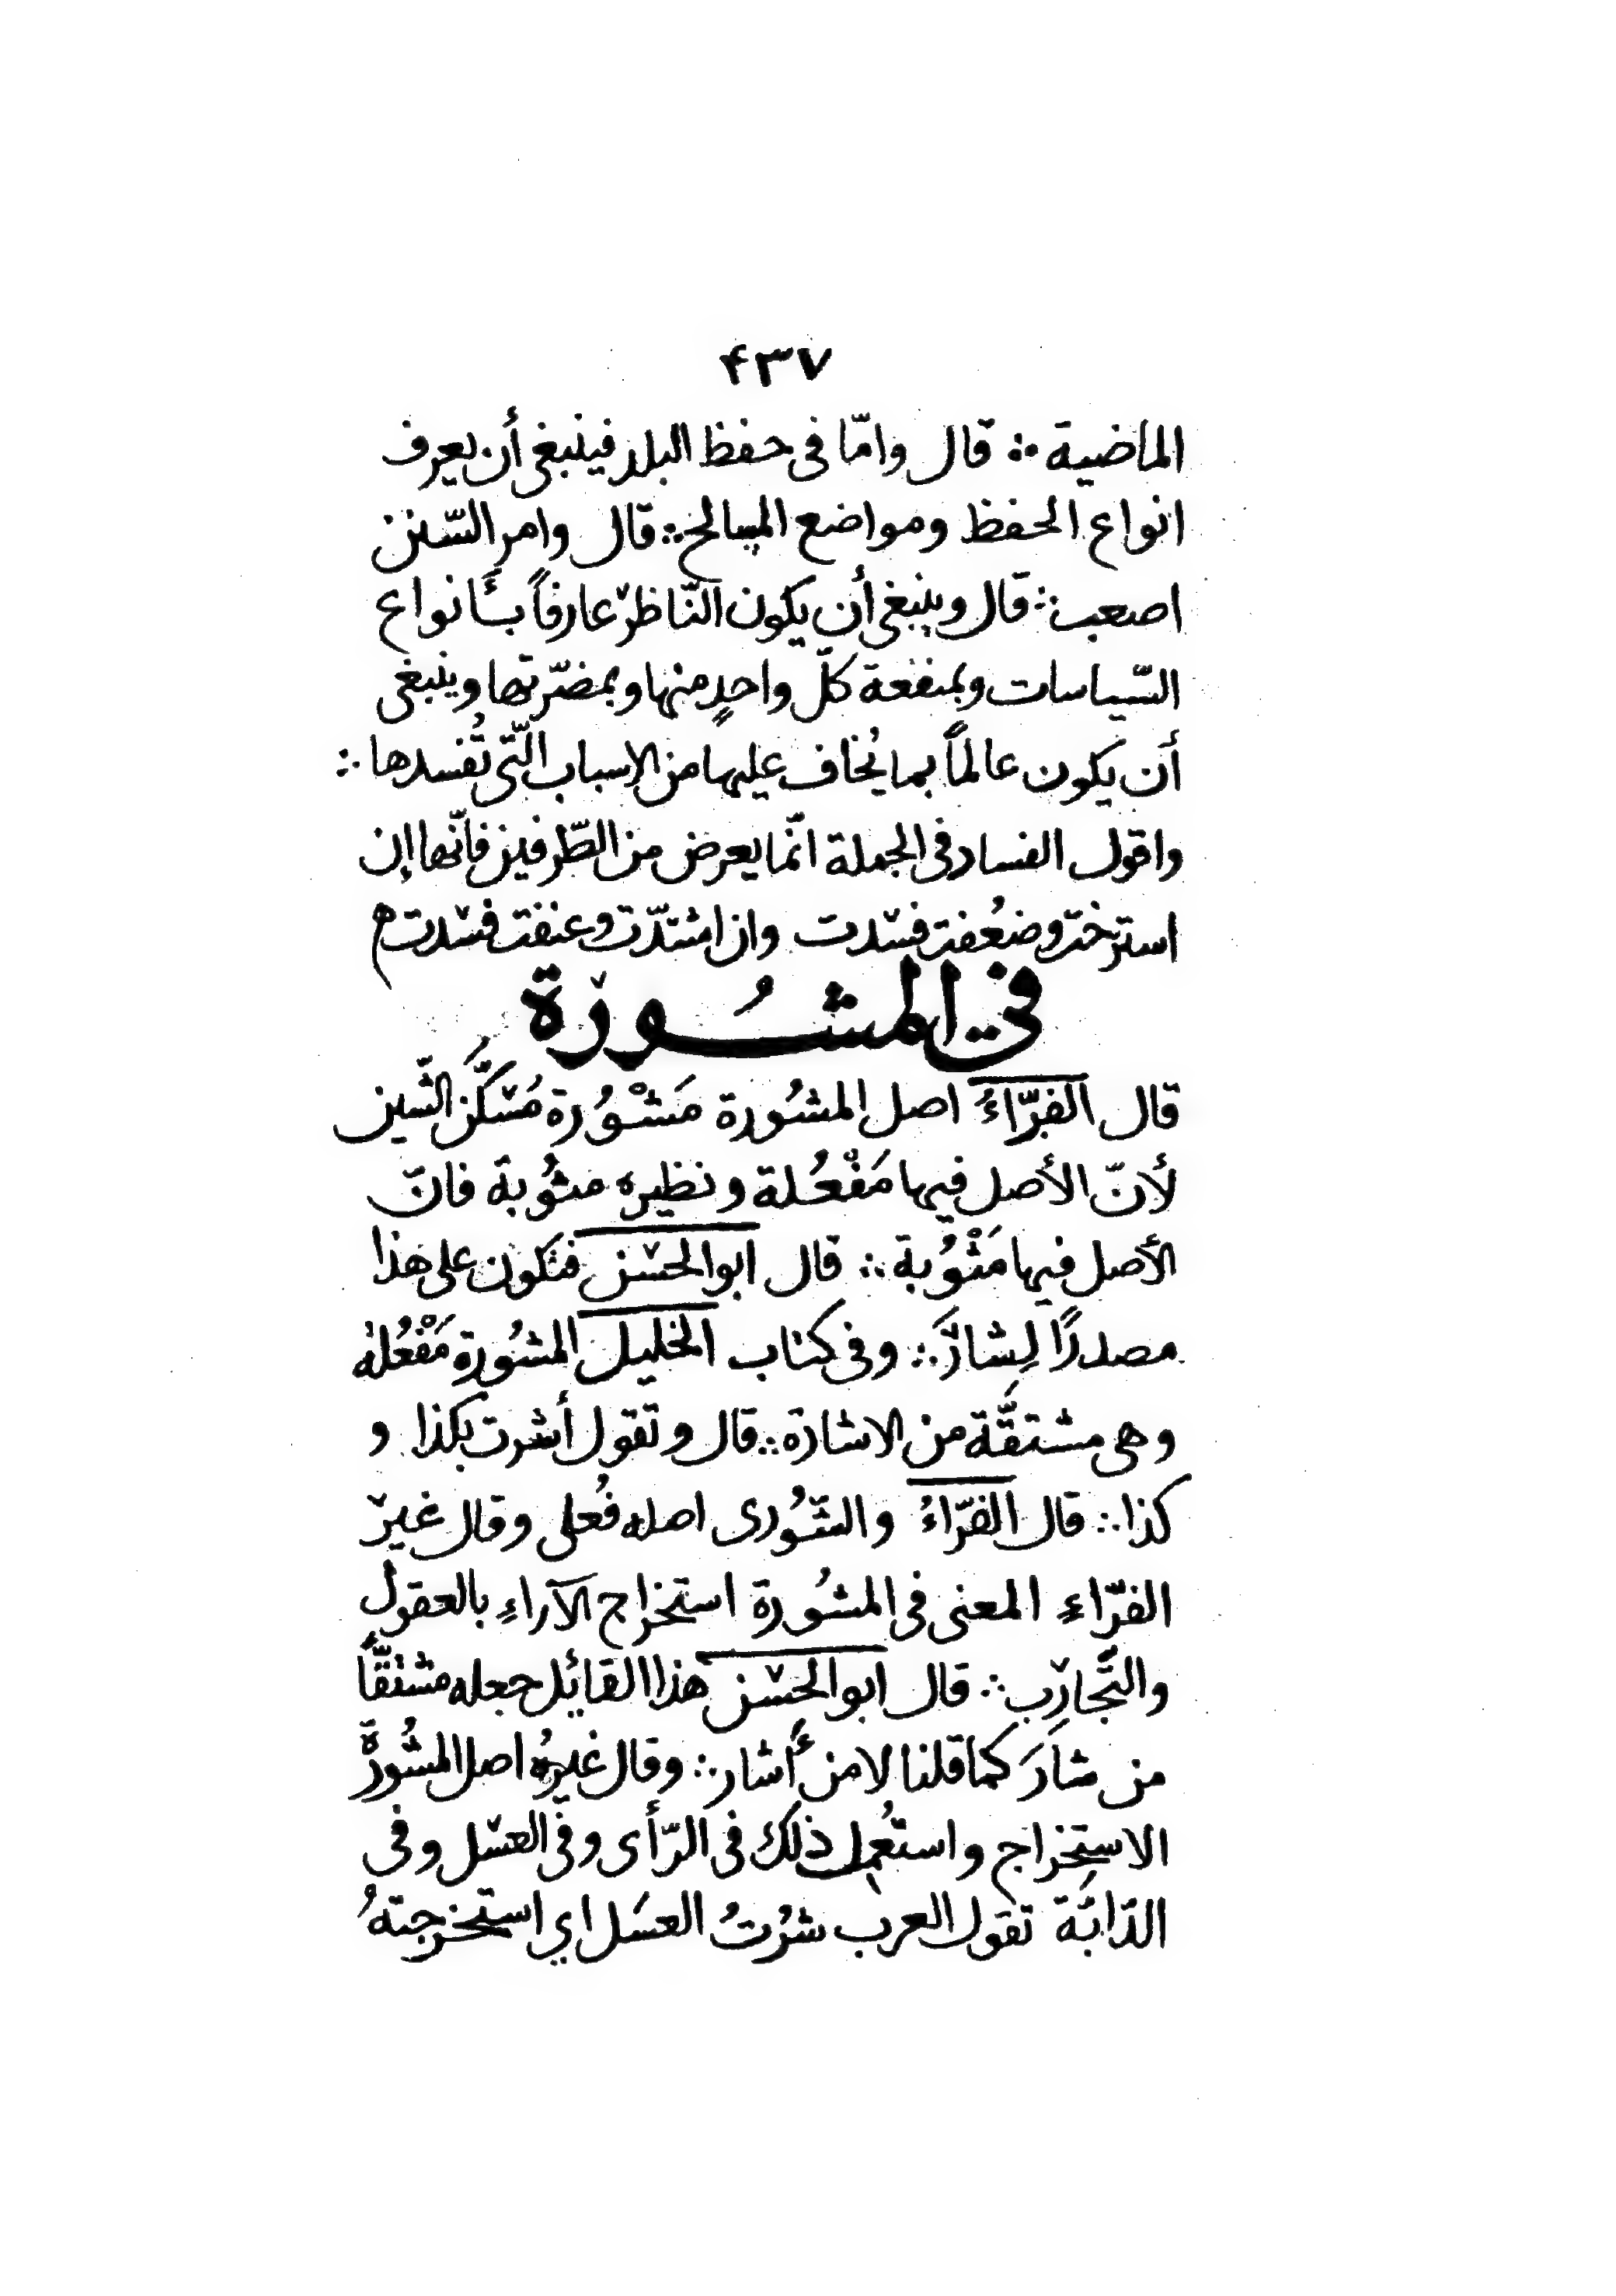 ۴۳۷
الماضية ∴ قال وامّا فى حفظ البلد فينبغى أن يعرف
انواع الحفظ ومواضع المسالح ∴ قال وامر السّنن
اصعب ∴ قال وينبغى أن يكون النّاظر عارفاً بأنواع
السّياسات وبمنفعة كلّ واحدٍ منها وبمضرّتها وينبغى
أن يكون عالماً بما يُخاف عليها من الاسباب الّتى تُفسدها ∴
واقول الفساد فى الجملة انّما يعرض من الطّرفين فانّها إن
استرخت وضعُفت فسدت وان اشتدّت وعنفت فسدت ه
في المشُورة
قال الفرّاءُ اصل المشُورة مَشْوُرة مُسَكَّن الشّين
لأنّ الأصل فيها مَفْعُلة ونظيره مثُوبة فانّ
الأصل فيها مَثْوُبة ∴ قال ابو الحسن فتكون على هذا
مصدرًا لِشارَ ∴ وفى كتاب الخليل المشُورة مَفْعُلة
وهى مشتقَّة من الاشارة ∴ قال وتقول أشرت بكذا و
كذا ∴ قال الفرّاءُ والشّورى اصله فُعلى وقال غير
الفرّاءِ المعنى فى المشُورة استخراج الآراءِ بالعقول
والتّجارِب ∴ قال ابو الحسن هذا القائل جعله مشتقّاً
من شارَ كما قلنا لا من أشار ∴ وقال غيرُه اصل المشُورة
الاستخراج واستُعمل ذلك فى الرّأى وفى العسل وفى
الدّابّة تقول العرب شرُتُ العسَل اي استخرجتهُ